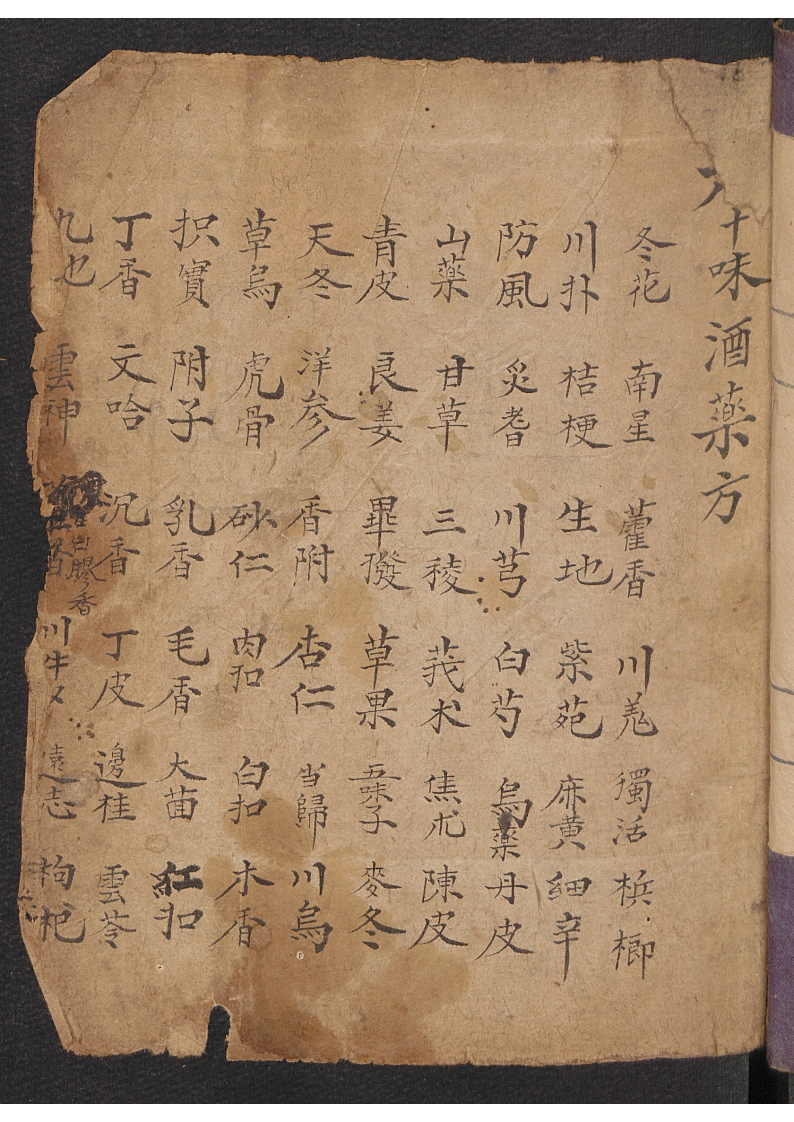 十味酒藥方
冬花 南星 藿香 川羗 獨活 梹榔
川扑 桔梗 生地 紫苑 庅黄 細辛
防風 炙耆 川芎 白芍 烏藥 丹皮
山藥 甘草 三稜 莪朮 焦朮 陳皮
青皮 良姜 畢撥 草果 五味子 麥冬
天冬 洋参 香附 杏仁 当歸 川烏
草烏 虎骨 砂仁 肉扣 白扣 木香
抧實 附子 乳香 毛香 大茴 紅扣
丁香 文哈 沉香 丁皮 邊桂 雲苓
白膠香
九也 雲神 川牛 遠志 枸杞